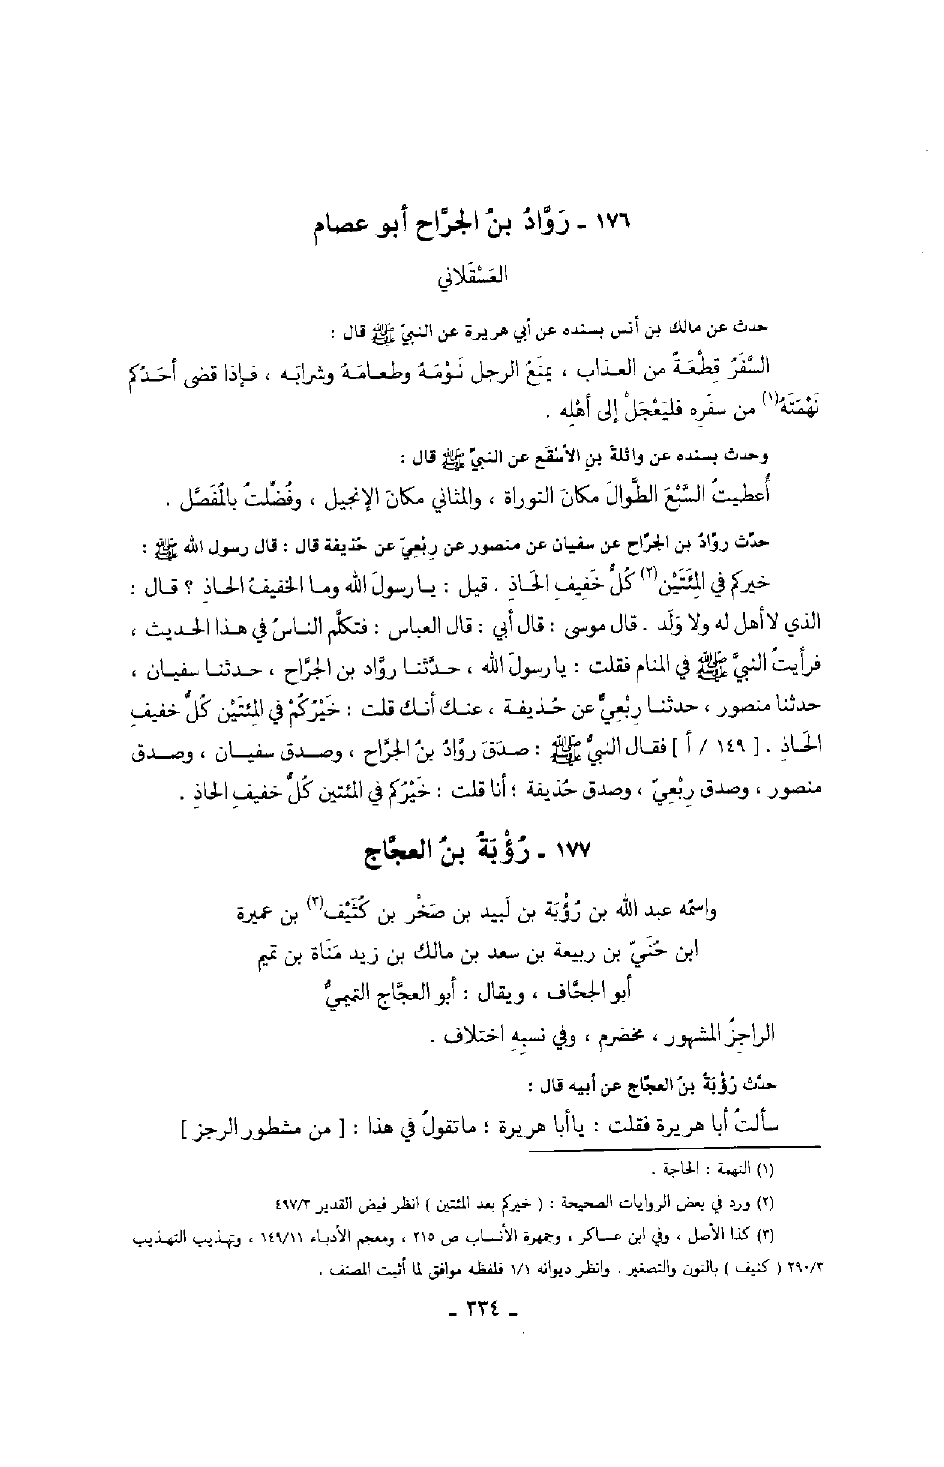 ١٧٦ ـ رَوَّادُ بنُ الجرَّاح أبو عصام
العَسْقَلاني
حدث عن مالك بن أنس بسنده عن أبي هريرة عن النبيّ ﷺ قال :
السَّفَرُ قِطْعَةٌ من العذاب ، يمنَعُ الرجل نَوْمَهُ وطعامَهُ وشرابَه ، فإذا قضى أحدُكم
نَهْمَتَهُ(١) من سفَرِه فليَعْجَلْ إلى أهْلِه .
وحدث بسنده عن واثلةَ بنِ الأسْقَع عن النبيّ ﷺ قال :
أُعطيتُ السَّبْعَ الطِّوالَ مكان التوراة ، والمثاني مكان الإنجيل ، وفُضِّلتُ بالمُفَصَّل .
حدَّث روَّادُ بن الجرَّاحِ عن سفيان عن منصور عن رِبْعيّ عن حُذيفة قال : قال رسول الله ﷺ :
خيركم في المِئَتَيْن(٢) كلُّ خَفيفِ الحَاذِ . قيل : يا رسولَ الله وما الخفيفُ الحاذِ ؟ قال :
الذي لا أهل له ولا ولَد . قال موسى : قال أبي : قال العباس : فتكلَّم الناسُ في هذا الحديث ،
فرأيتُ النبيَّ ﷺ في المنام فقلت : يا رسولَ الله ، حدَّثنا روَّاد بن الجرَّاح ، حدثنا سفيان ،
حدثنا منصور ، حدثنا رِبْعيٌّ عن حُذيفة ، عنك أنك قلت : خَيْرُكُمْ في المِئتَيْن كلُّ خفيفِ
الحَاذِ . [ ١٤٩ / أ ] فقال النبيُّ ﷺ : صدَقَ روَّادُ بنُ الجرَّاح ، وصدق سفيان ، وصدق
منصور ، وصدق رِبْعيّ ، وصدق حُذيفة ؛ أنا قلت : خَيْرُكم في المئتين كلُّ خفيفِ الحاذِ .
١٧٧ ـ رُؤْبَةُ بنُ العجَّاج
واسمُه عبد الله بن رُؤبَة بن لَبيد بن صَخْر بن كُثَيْف(٣) بن عميرة
ابن حُنَيّ بن ربيعة بن سعد بن مالك بن زيد مَنَاة بن تميم
أبو الجحَّاف ، ويقال : أبو العجَّاج التميميُّ
الراجزُ المشهور ، مخضرم ، وفي نسبِهِ اختلاف .
حدَّث رُؤْبَةُ بنُ العجّاج عن أبيه قال :
سألتُ أبا هريرة فقلت : ياأبا هريرة ؛ ماتقولُ في هذا : [ من مشطور الرجز ]
(١) النهمة : الحاجة .
(٢) ورد في بعض الروايات الصحيحة : ( خيركم بعد المئتين ) انظر فيض القدير ٤٩٧/٣
(٣) كذا الأصل ، وفي ابن عساكر ، وجمهرة الأنساب ص ٢١٥ ، ومعجم الأدباء ١٤٩/١١ ، وتهذيب التهذيب
٢٩٠/٣ ( كنيف ) بالنون والتصغير . وانظر ديوانه ١/١ فلفظه موافق لما أثبت المصنف .
ـ ٣٣٤ ـ